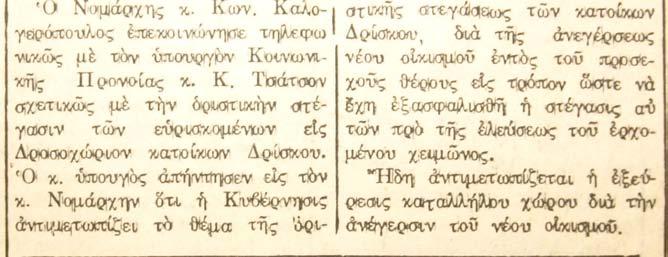 Ὁ Νομάρχης κ. Κων. Καλο-
γερόπουλος ἐπεκοινώνησε τηλεφω
νικῶς μὲ τὸν ὑπουργὸν Κοινωνι-
κῆς Προνοίας κ. Κ. Τσάτσον
σχετικῶς μὲ τὴν ὁριστικὴν στέ-
γασιν τῶν εὑρισκομένων εἰς
Δροσοχώριον κατοίκων Δρίσκου.
Ὁ κ. ὑπουγὸς ἀπήντησεν εἰς τὸν
κ. Νομάρχην ὅτι ἡ Κυβέρνησις
ἀντιμετωπίζει τὸ θέμα τῆς ὁρι-
στικῆς στεγάσεως τῶν κατοίκων
Δρίσκου, διὰ τῆς ἀνεγέρσεως
νέου οἰκισμοῦ ἐντὸς τοῦ προσε-
χοῦς θέρους εἰς τρόπον ὥστε νὰ
ἔχῃ ἐξασφαλισθῆ ἡ στέγασις αὐ
τῶν πρὸ τῆς ἐλεύσεως τοῦ ἐρχο-
μένου χειμῶνος.
Ἤδη ἀντιμετωπίζεται ἡ ἐξεύ-
ρεσις καταλλήλου χώρου διὰ τὴν
ἀνέγερσιν τοῦ νέου οἰκισμοῦ.